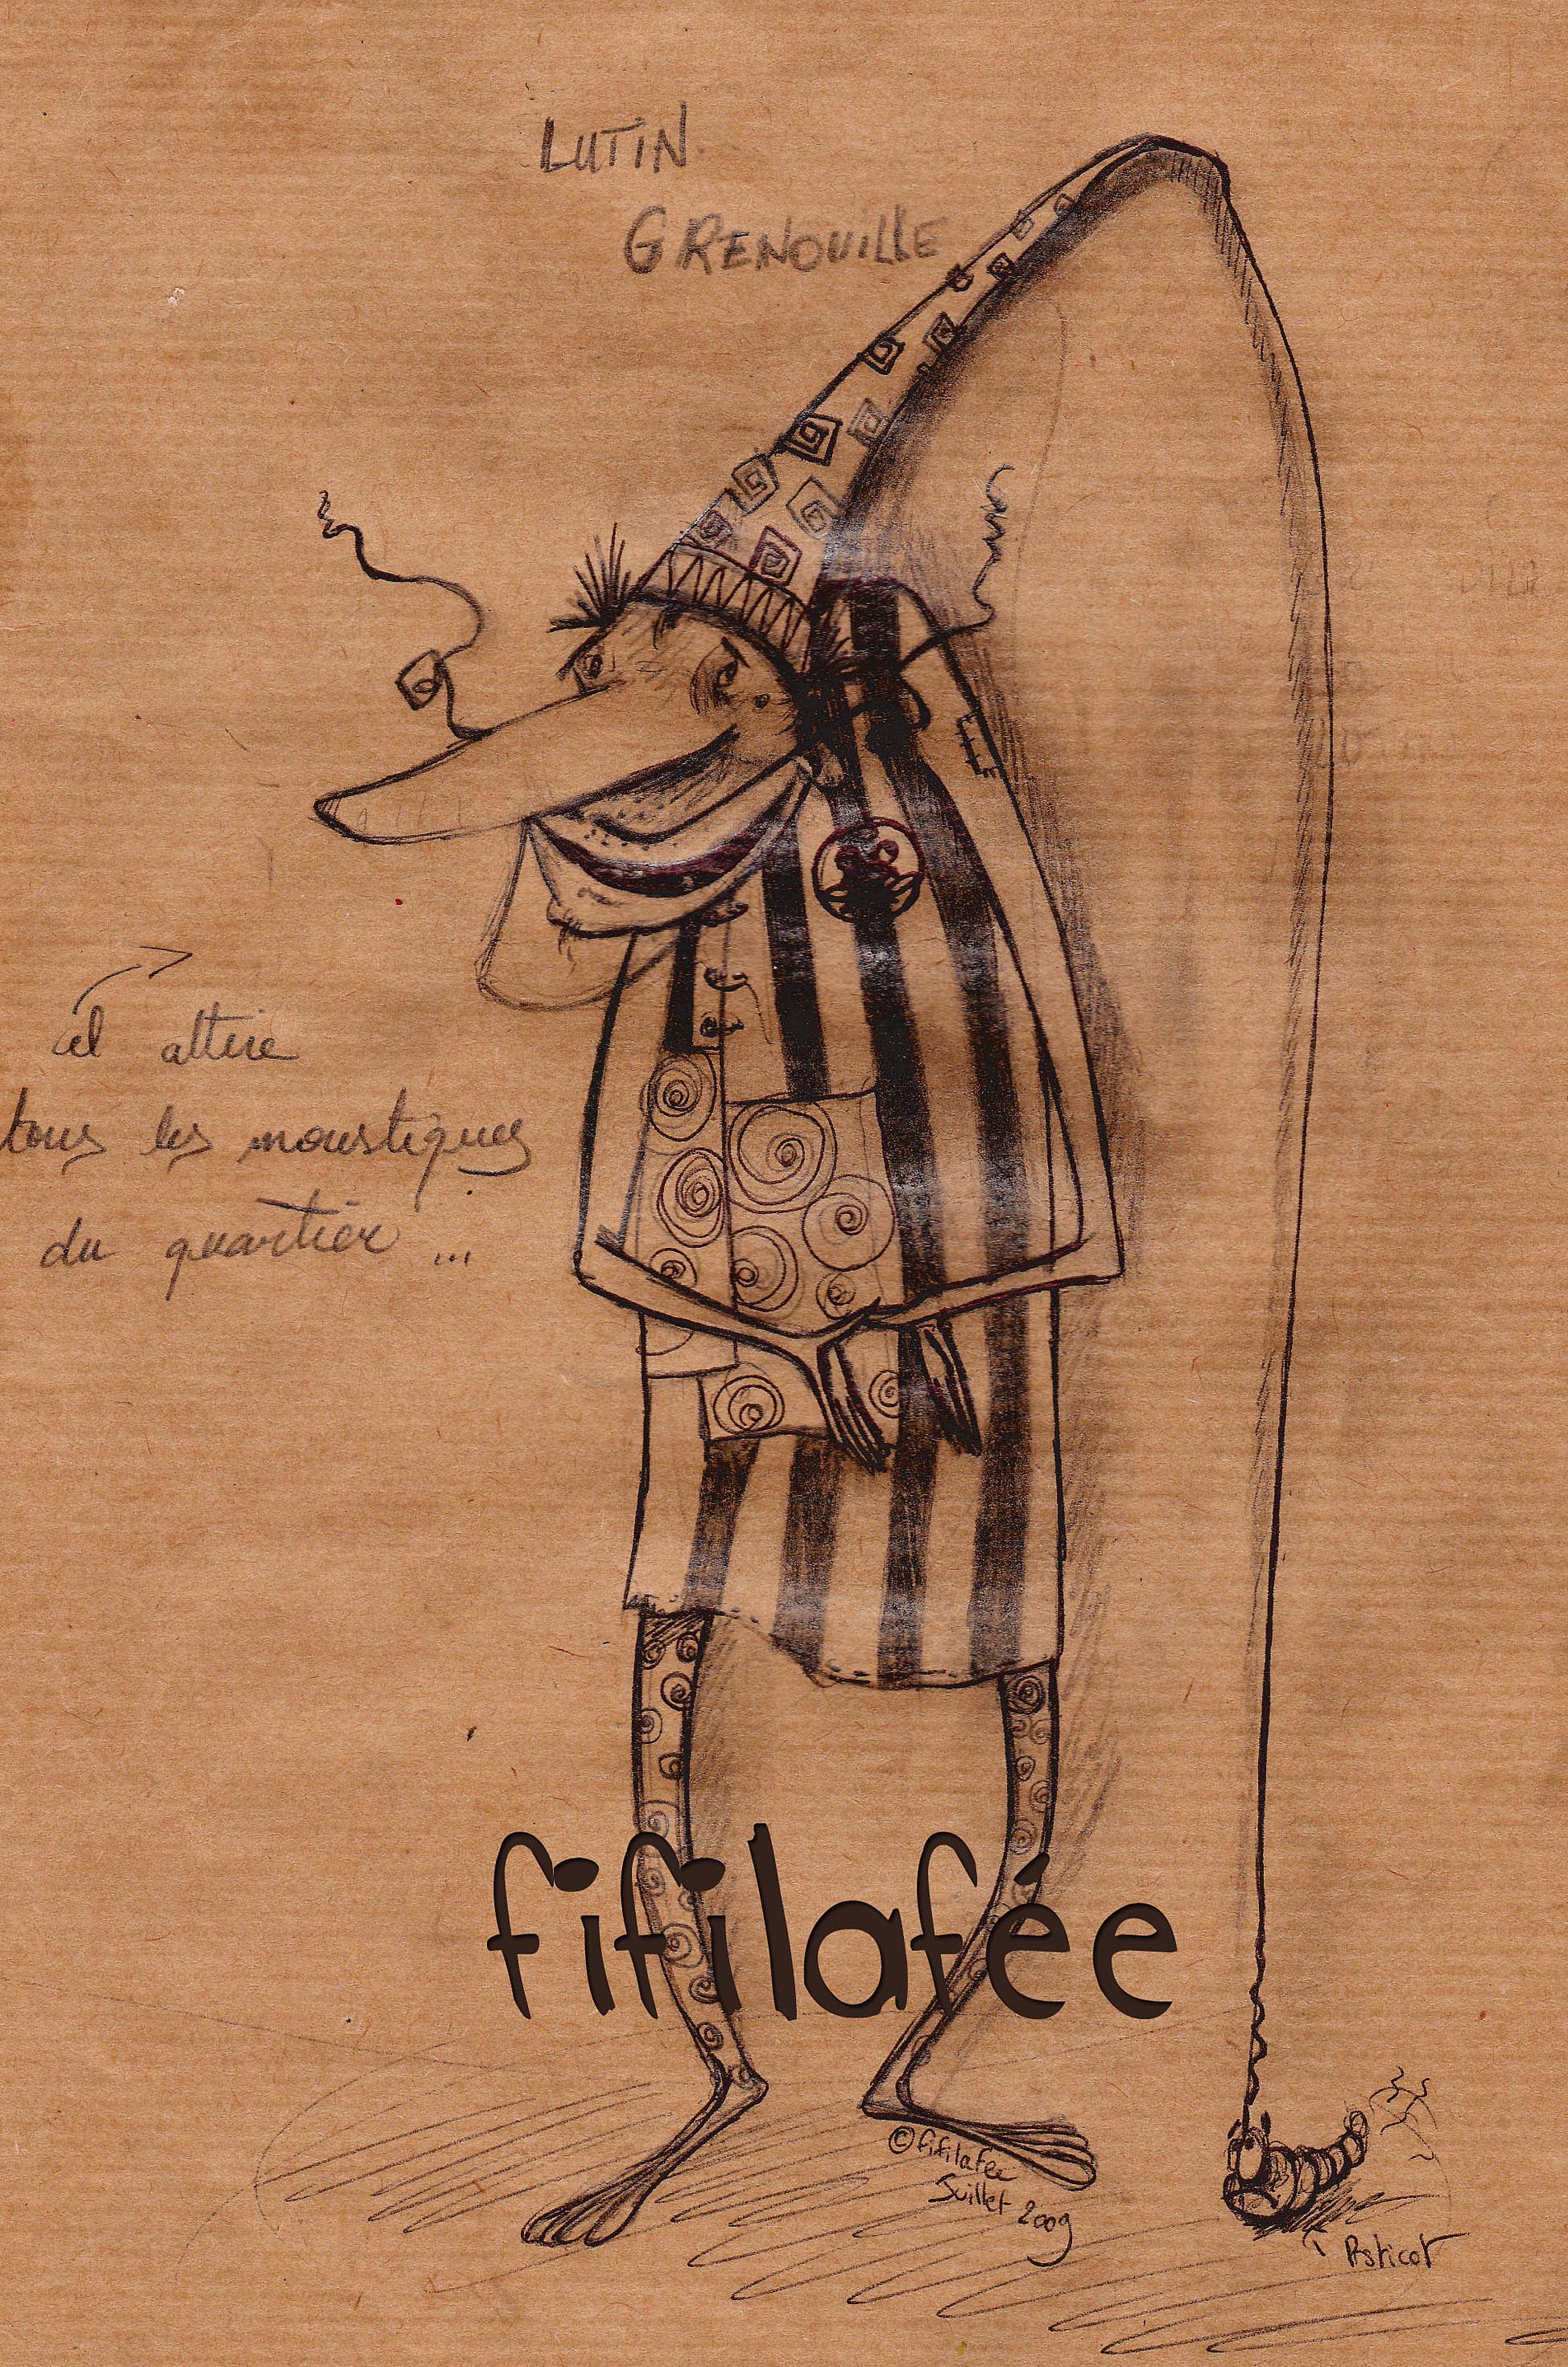 LUTIN
GRENOUILLE
il attire
tous les moustiques
du quartier ...
fifilafée
©fifilafée
Juillet 2009
Asticot